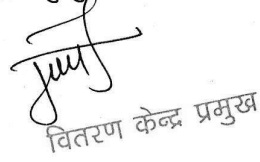 वितरण केन्द्र प्रमुख